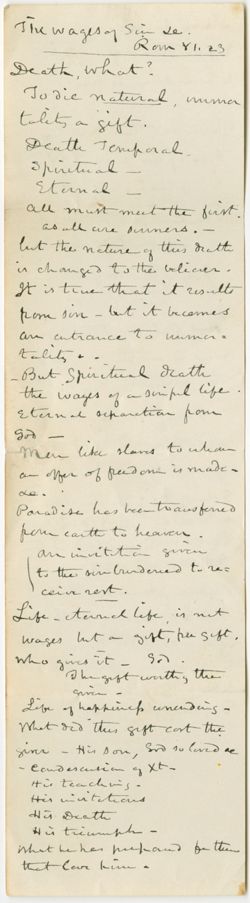 The wages of Sin &c.
Rom VI. 23
Death, what?
To die natural, immor
tality a gift.
Death Temporal.
Spiritual —
Eternal —
all must meet the first.
as all are sinners. —
but the nature of this death
is changed to the believer.
It is true that it results
from sin - but it becomes
an entrance to immor-
tality
- But Spiritual death
the wages of a sinful life.
Eternal separation from
God —
Men like slaves to whom
an offer of freedom is made -
&c.
Paradise has been transferred
from earth to heaven.
an invitation given
to the sin burdened to re-
ceive rest.
Life - eternal life, is not
wages but a gift, free gift.
who gives it - God.
The gift worthy the
giver -
Life of happiness unending -
What did this gift cost the
giver - His son, God so loved &c
- condescension of Xt -
His teaching -
His invitations
His Death
His triumph -
What he has prepared for them
that love him -